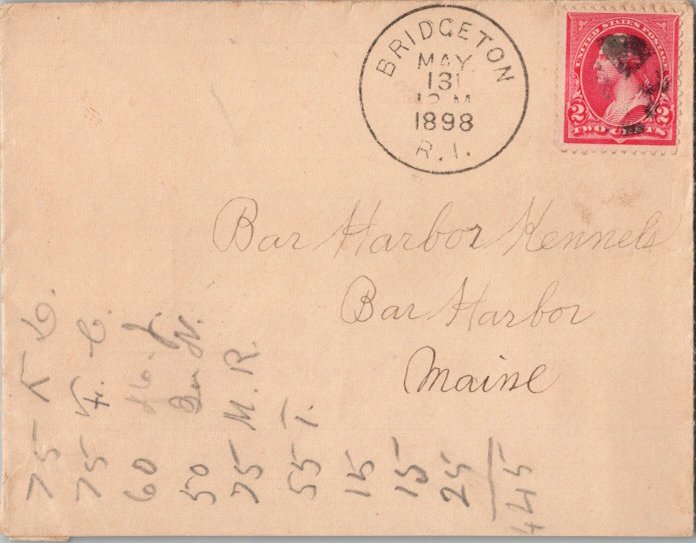 BRIDGETON
MAY
13
12 M
1898
R.I.
UNITED STATES POSTAGE
2 TWO CENTS 2
Bar Harbor Kennels
Bar Harbor
Maine
75
75
60
50
75 M. R.
55 T.
15
15
25
445